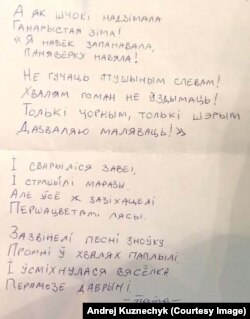 А як шчокі надзімала
Ганарыстая зіма!
«Я навек запанавала,
Паняверку навяла!
Не гучаць птушыным спевам!
Хвалям гоман не ўздымаць!
Толькі чорным, толькі шэрым
Дазваляю маляваць!»
І сварыліся завеі,
І страшылі маразы.
Але ўсё ж зазіхацелі
Першацветамі лясы.
Зазвінелі песні зноўку
Промні ў хвалях паплылі.
І ўсміхнулася вясёлка
Перамозе дабрыні
-тата-
Andrej Kuznechyk (Courtesy Image)